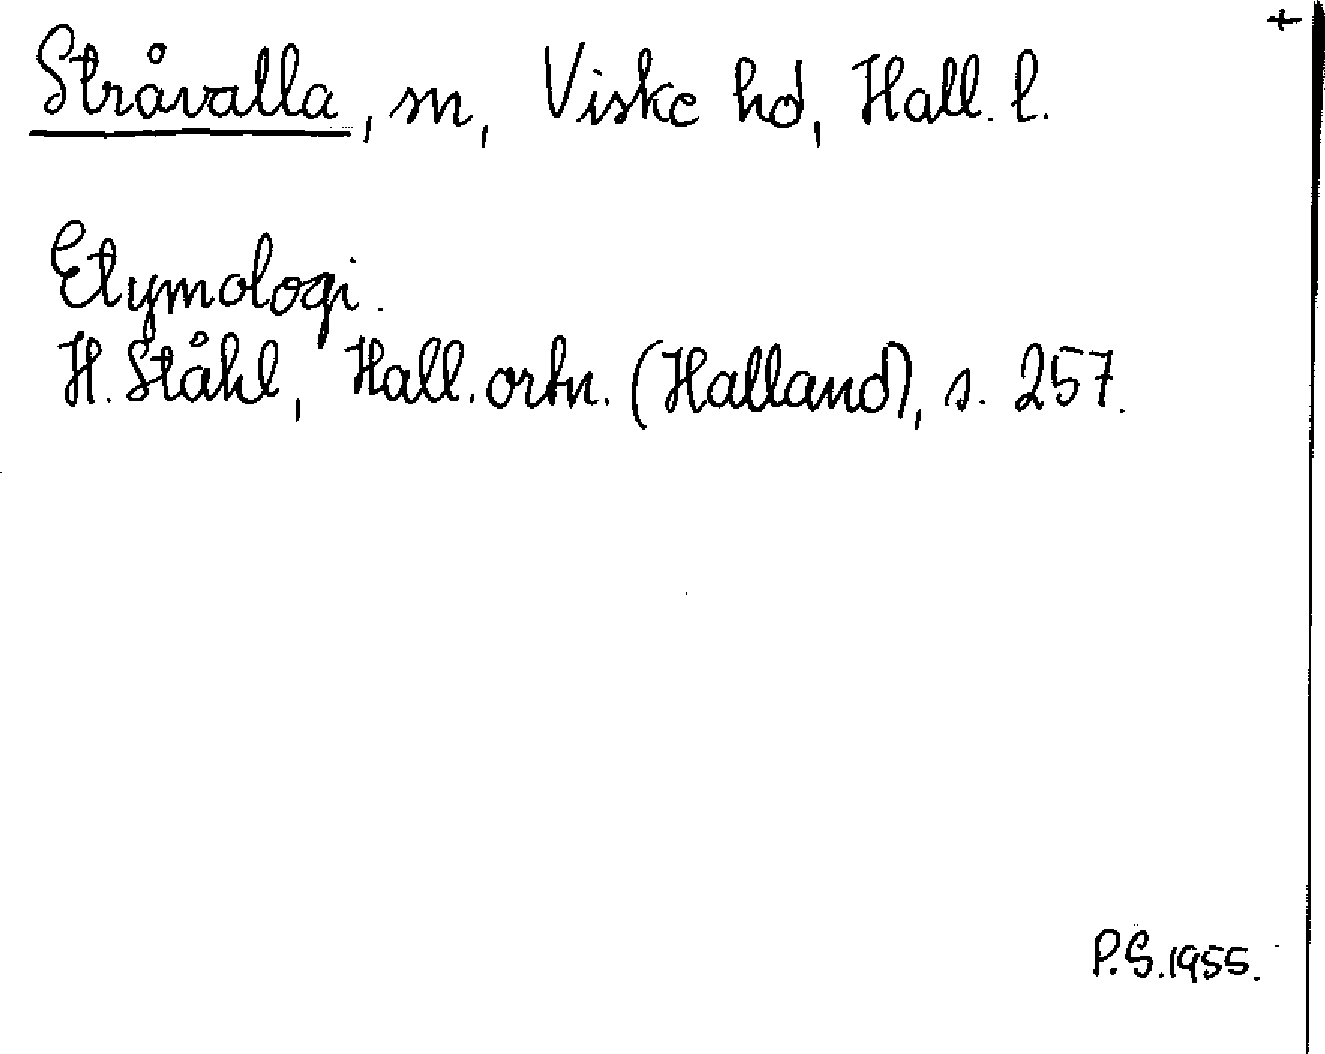 +
Stråvalla, sn, Viske hd, Hall. l.
Etymologi.
H. Ståhl, Hall. ortn. (Halland), s. 257.
P.S. 1955.